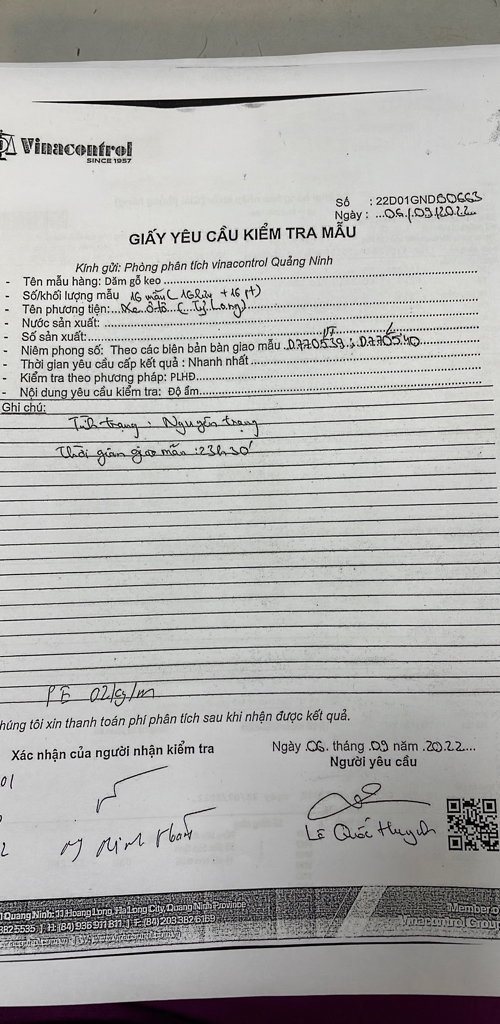 Vinacontrol
SINCE 1957
Số : 22D01GNDB0663
Ngày : ...06./.09./2022...
GIẤY YÊU CẦU KIỂM TRA MẪU
Kính gửi: Phòng phân tích vinacontrol Quảng Ninh
- Tên mẫu hàng: Dăm gỗ keo
- Số/khối lượng mẫu 16 mẫu (16 lưu + 16 pt)
- Tên phương tiện: Xe ô tô
- Nước sản xuất:
- Số sản xuất:
- Niêm phong số: Theo các biên bản bàn giao mẫu D770539; D770540
PT L
- Thời gian yêu cấp kết quả : Nhanh nhất
- Kiểm tra theo phương pháp: PLHĐ
- Nội dung yêu cầu kiểm tra: Độ ẩm
Ghi chú:
Tình trạng : Nguyên trạng
Thời gian giao mẫu : 23h30'
PE 02kg/m
húng tôi xin thanh toán phí phân tích sau khi nhận được kết quả.
Xác nhận của người nhận kiểm tra
Ngày .06. tháng .09 năm .2022...
Người yêu cầu
01
2
Minh
Lê Quốc Huynh
Quang Ninh: 11 Hoang Long, Ha Long City, Quang Ninh Province
3825535 | H: (84) 936 911 811 | F: (84) 2033826169
Member o
Vinacontrol Group